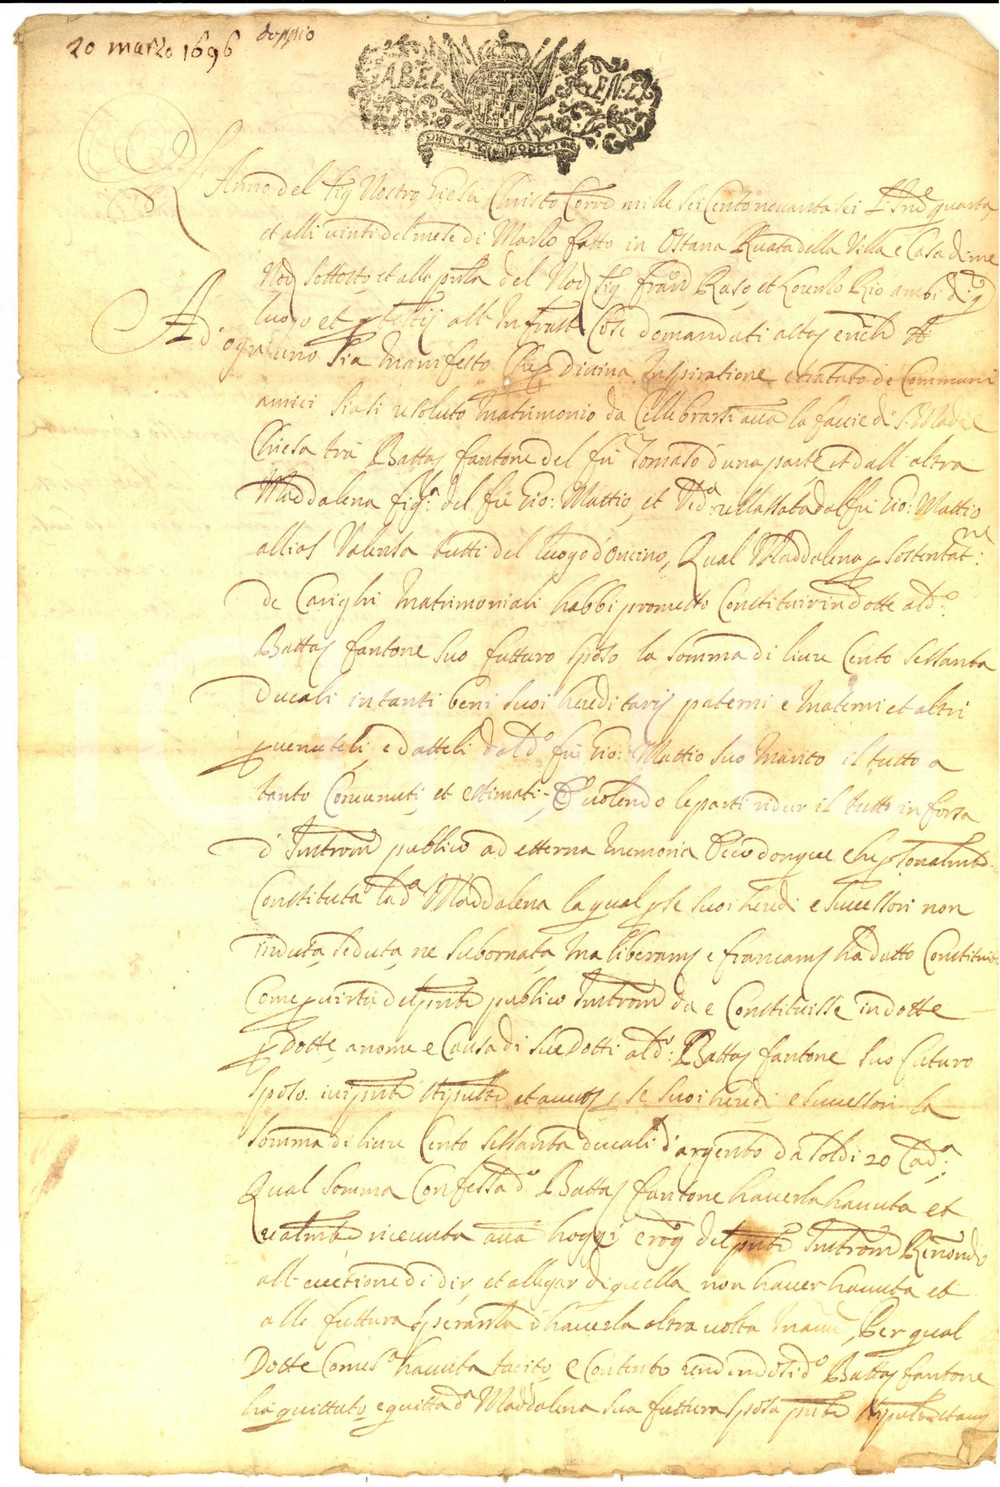 20 marzo 1696 doppio
GABEL GEN.LE
L'Anno del Sig Nostro Giesù Christo Corrd mille seicentonovantasei l'Inde quarta
et alli vinti del mese di Marzo fatto in Ostana Ruata della Villa e Casa di me
Nod sottosto et alla pntia del Nod Sig Frand Raso, et Lorenzo Rio ambi di qto
luogo et testij all'Infratti Cose domandati
Ad ogn'uno sia Manifesto Che p divina Inspiratione e trattato de Communi
amici siasi resoluto Matrimonio da Cellebrarsi avan la faccie di S. Madre
Chiesa trà Battaj fantone del fù Tomaso d'una parte et dall'altra
Maddalena figa del fù Gio: Mattio, et Veda: rellassata dal fù Gio: Mattio
allias Valensa tutti del luogo d'oncino, Qual Maddalena p sostentat:ne
de Carighi Matrimoniali habbi promesso Constituir in dotte al do:
Battaj fantone suo futturo sposo la somma di livre Cento sessanta
Ducali in tanti beni suoi hereditarij paterni e Materni et altri
pvenuteli, e datteli dal do fù Gio: Mattio suo Marito il tutto a
tanto Convenuti, et estimati, E volendo le parti ridur il tutto in forza
d'Instromd publico ad etterna memoria Ecco donque che psonalmte
Constituta la da Maddalena la qual p se suoi heredi e successori non
indutta, seduta, ne subornata, Ma liberamj e francamj ha datto Constituito
Come p virtù del pnte publico Instromd da e Constituisse in dotte
p Dotte, a nome e Causa di sue Dotti al do: Battaj fantone suo futuro
sposo ivi pnte stipulte et acctte p se suoi heredi e successori la
somma di livre Cento sessanta ducali d'argento da soldi 20 Cada:
Qual somma Confessa do Battaj fantone haverla havuta et
realmte ricevuta avan hoggi e rog del pnte Instromd Renondo
all'ecctione di dir, et allegar di quella non haver havuta et
alla futtura speranza d'haverla altra volta Per qual
Dotte Come sa havuta tacito e Contento rendendosi do Battaj fantone
ha quittato e quitta da Maddalena sua futtura sposa pnte stipulte